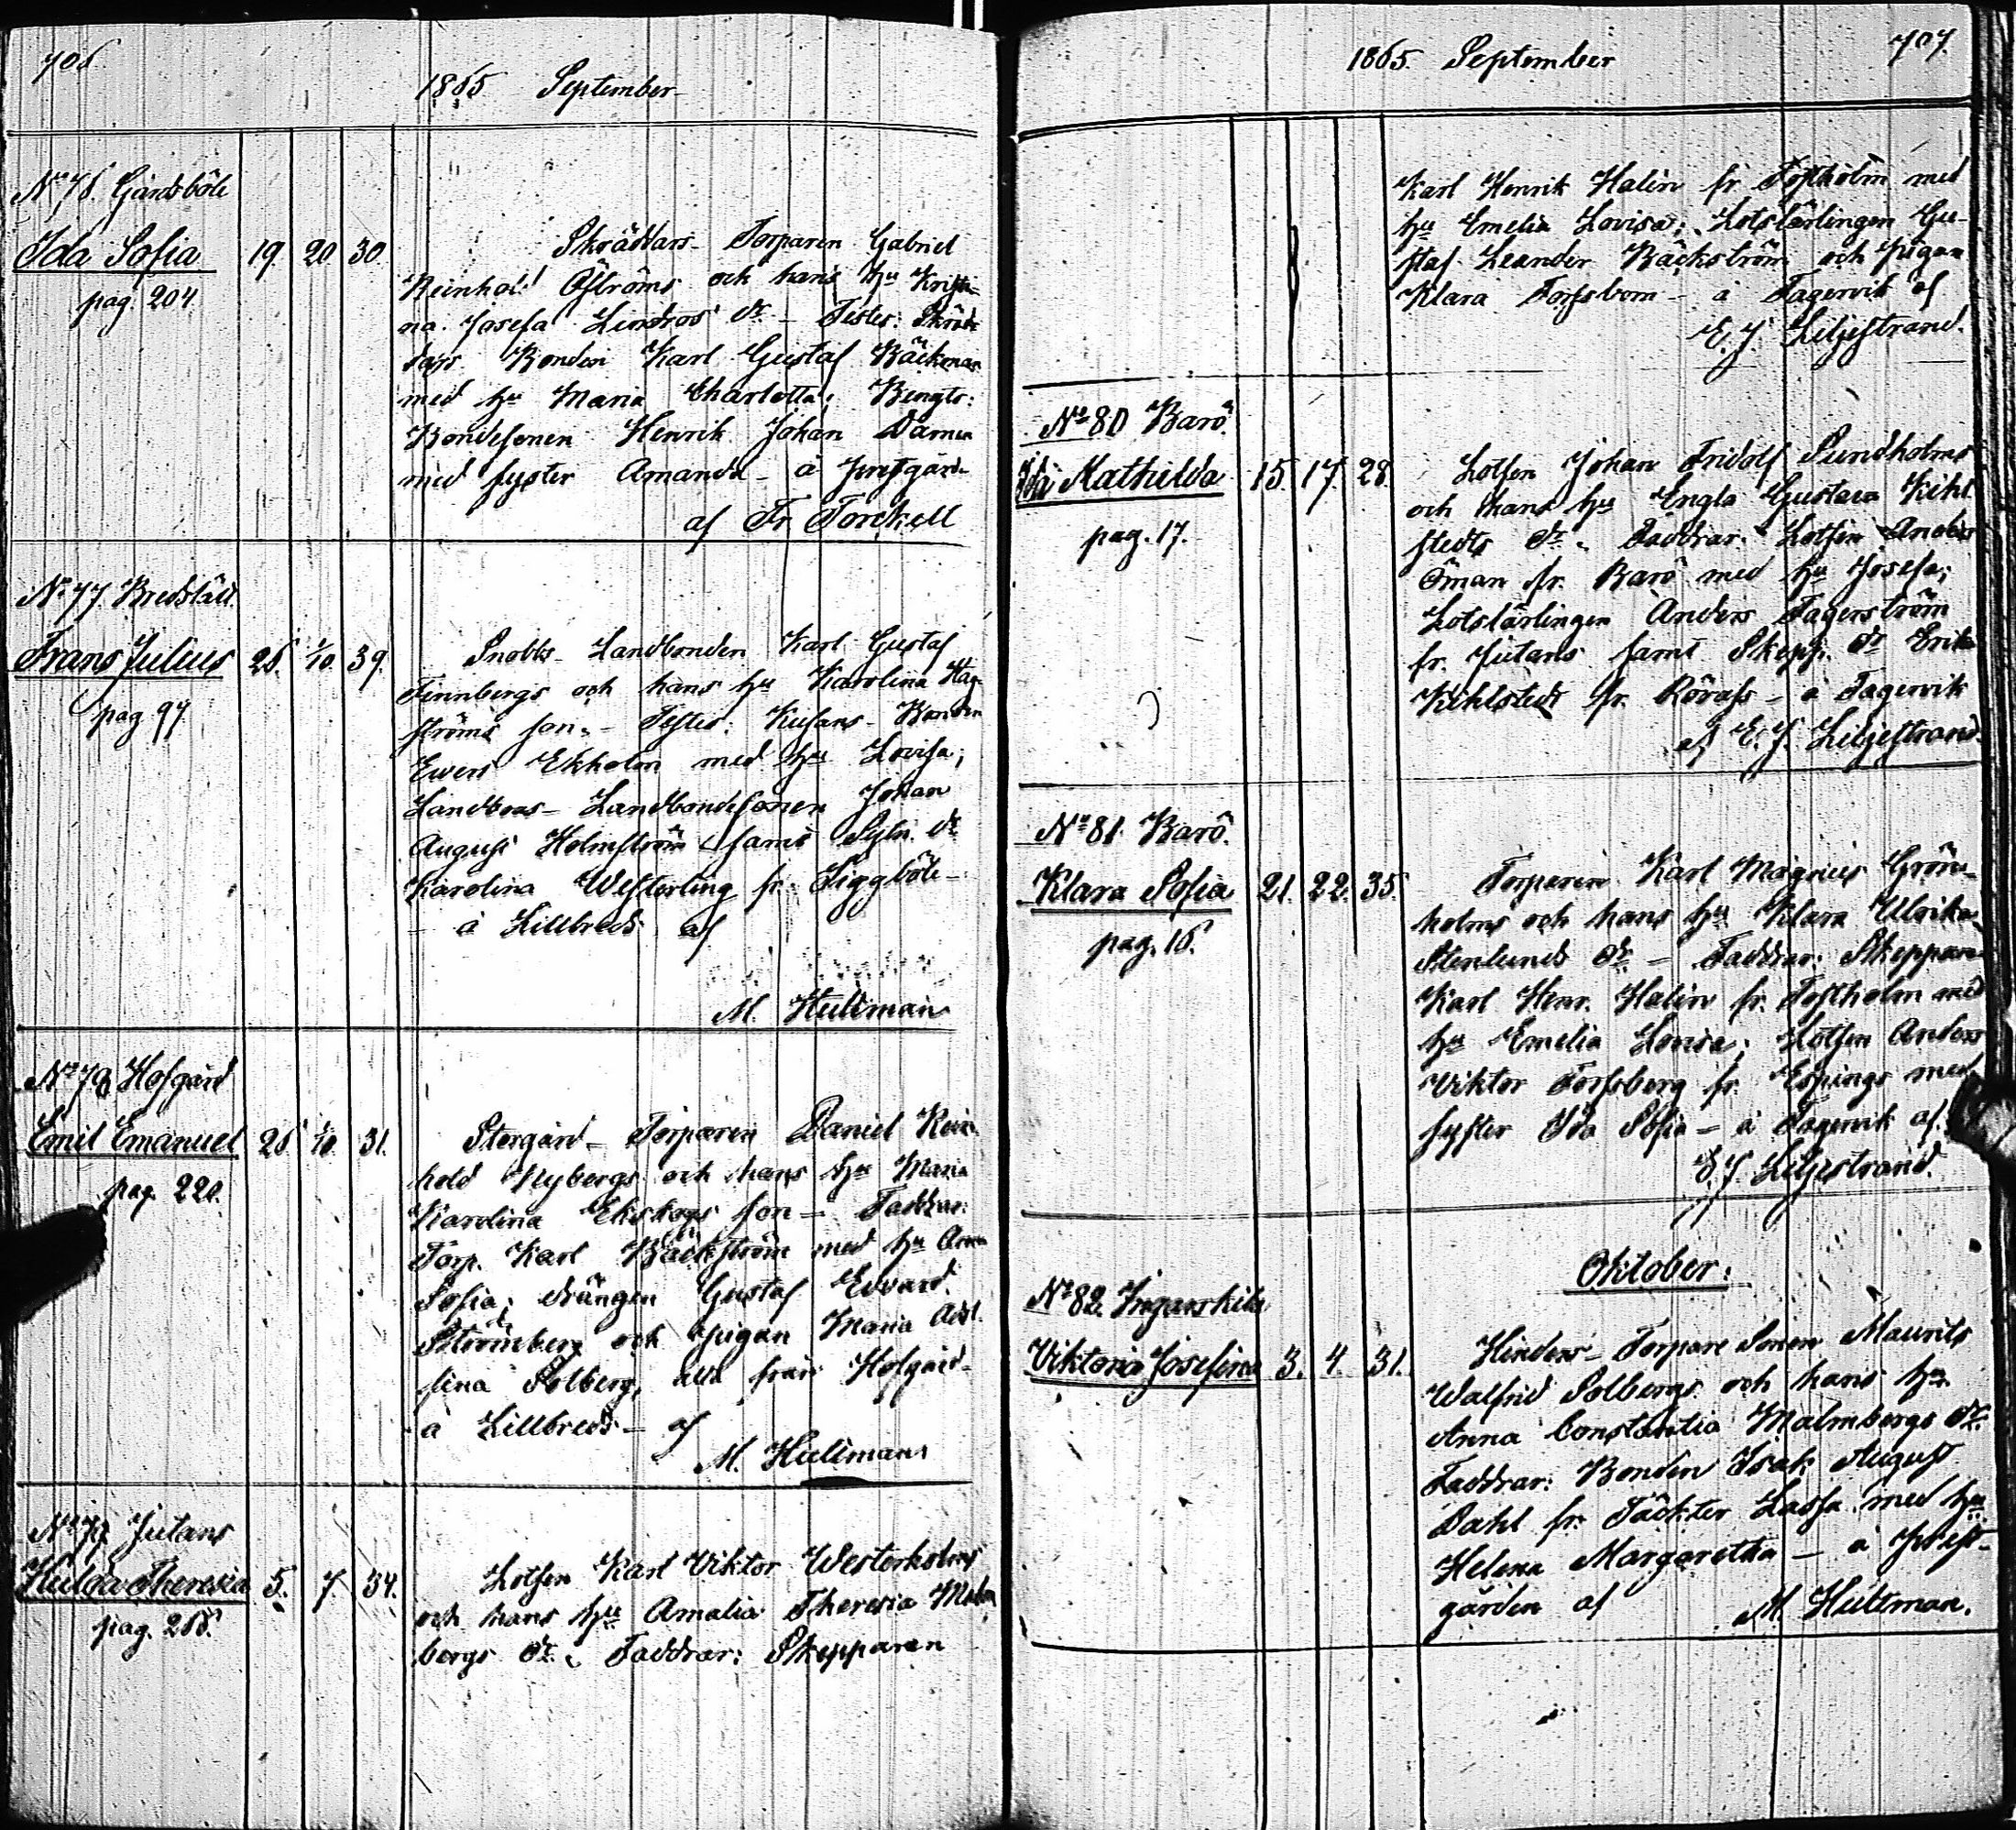 706.
1865 September
No 76. Gårdsböle
Ida Sofia 19. 20 30.
pag. 204
Skräddars Torparen Gabriel
Reinhold Öströms och hans hu Kristi-
na Josefa Lindros dr Testes: Skräd-
dars Bonden Karl Gustaf Bäckman
med hu Maria Charlotta; Bengts:
Bondesonen Henrik Johan
med syster Amanda - å prestgård-
af Fr. Torckell
No 77. Bredslätt
Frans Julius 26. 1/10 39.
pag 97
Snobbs- Landbonden Karl Gustaf
Finnbergs och hans hu Karolina Hag-
ströms son. - Testes: Kusans- Bonden
Ewert Ekholm med hu Lovisa;
Landbos- Landbondesonen Johan
August Holmström samt Sytn. dr
Karolina Westerling fr. Siggböle -
- å Lillbreds af
M. Hultman
No 78 Hofgård
Emil Emanuel 26 1/10 31.
pag. 220.
Storgård- Torparen Daniel Rein-
hold Nybergs och hans hu Maria
Karolina Ekskogs son - Faddrar:
Torp. Karl Bäckström med hu Anna
Sofia; drängen Gustaf Edvard
Strömberg och pigan Maria Adol-
fina Solberg, alla från Hofgård-
å Lillbreds - af
M. Hultman
No 79 Jutans
Hulda Theresia 5. 7 34.
pag. 268.
Lotsen Karl Viktor Westerholms
och hans hu Amalia Theresia Malm-
bergs dr. Faddrar: Skepparen
1865. September
707.
Karl Henrik Halin fr Tostholm med
hu Emelia Lovisa; Lotslärlingen Gu-
staf Leander Bäckström och pigan
Klara Forssbom - å Fagervik af
E. J. Liljestrand.
No 80 Barö.
Ida Mathilda 15. 17. 28.
pag. 17.
Lotsen Johan Fridolf Sundholms
och hans hu Engla Gustava Kihl-
stedts dr. Faddrar: Lotsen Anders
Öman fr. Barö med hu Josefa;
Lotslärlingen Anders Fagerström
fr. Jutans samt Skepp. dr Erika
Kihlstedt fr. Rövass - å Fagervik
af E. J. Liljestrand.
No 81. Barö.
Klara Sofia 21. 22. 35.
pag. 16.
Torparen Karl Magnus Grön-
holms och hans hu Klara Ulrika
Stenlunds dr - Faddrar: Skepparen
Karl Henr. Halin fr. Tostholm med
hu Emelia Lovisa; Lotsen Anders
Viktor Forssberg fr. Espings med
syster Ida Sofia - å Fagervik af
E. J. Liljestrand.
Oktober:
No 82. Ingarskila
Viktoria Josefina 3. 4. 31.
Hinders- Torpare Sonen Maurits
Walfrid Solbergs och hans hu
Anna Constantia Malmbergs dr.
Faddrar: Bonden Isak August
Dahl fr. Täckter Lassa med hu
Helena Margaretha - å prest-
gården af M. Hultman.